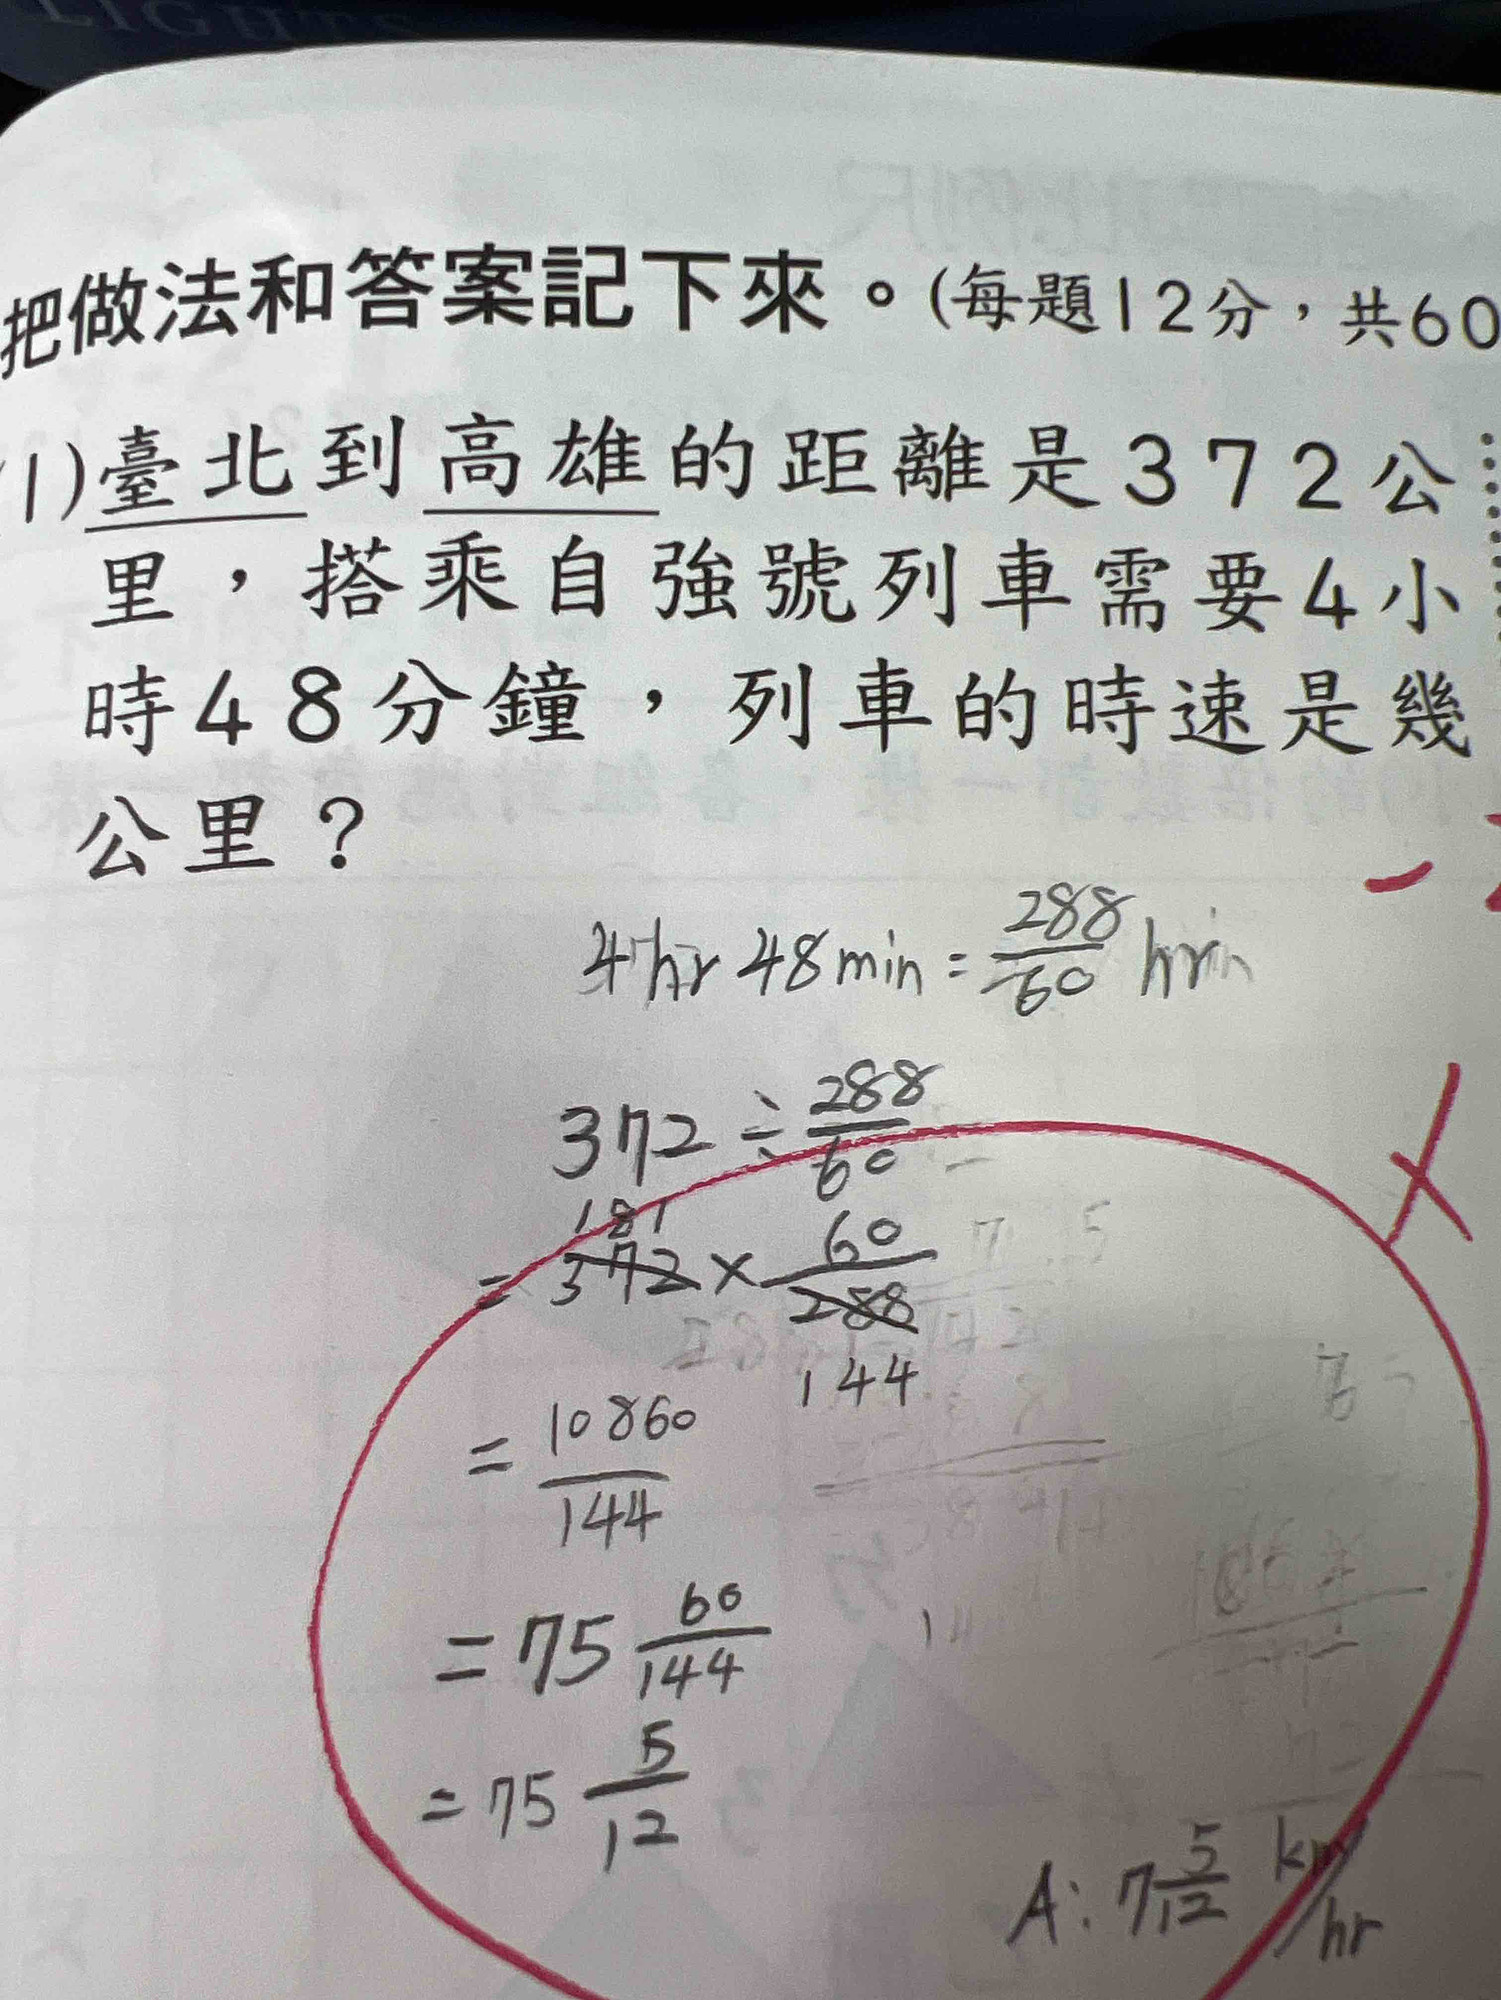 LIGHTS
把做法和答案記下來。(每題12分，共60
(1)臺北到高雄的距離是372公
里，搭乘自強號列車需要4小
時48分鐘，列車的時速是幾
公里？
4hr 48min = 288/60 hr
372 ÷ 288/60
181
= 372 × 60/288
144
= 10860/144
= 75 60/144
= 75 5/12
A: 7 5/12 km/hr